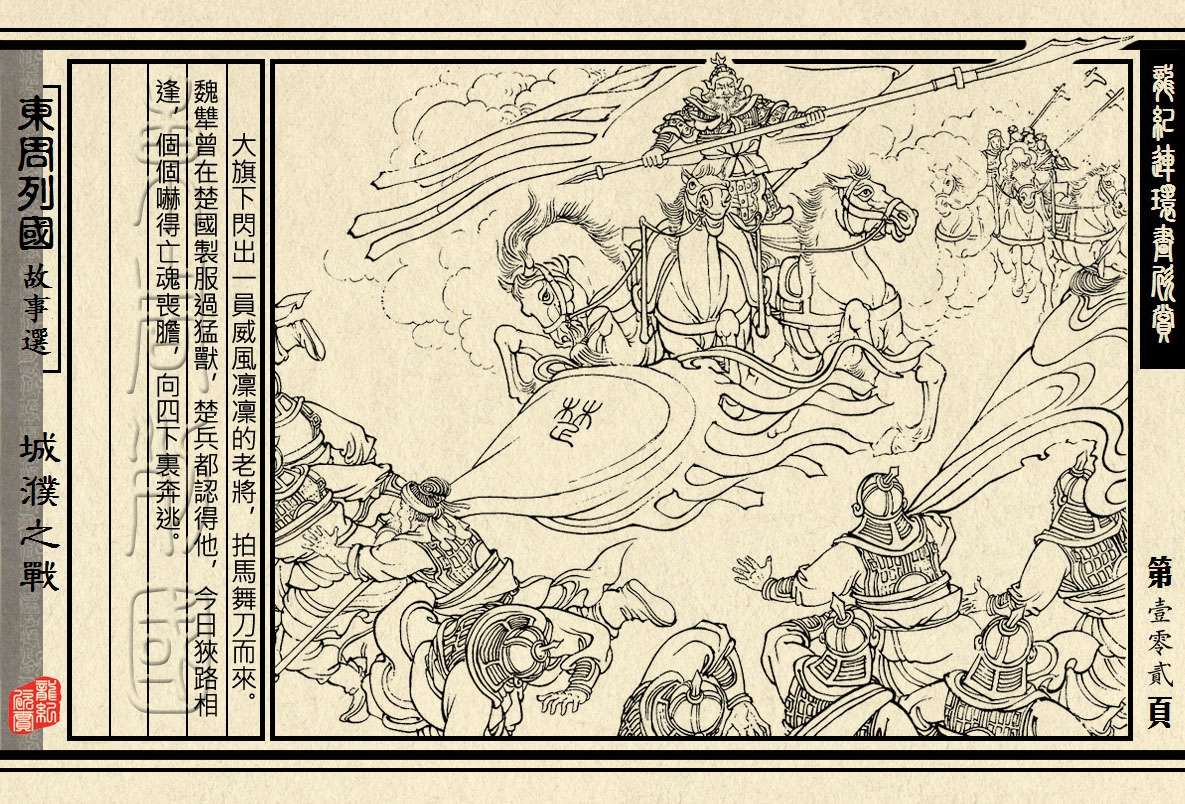 龍紀連環畫欣賞
第壹零貳頁
大旗下閃出一員威風凜凜的老將，拍馬舞刀而來。
魏犨曾在楚國製服過猛獸，楚兵都認得他，今日狹路相
逢，個個嚇得亡魂喪膽，向四下裏奔逃。
東周列國故事選
城濮之戰